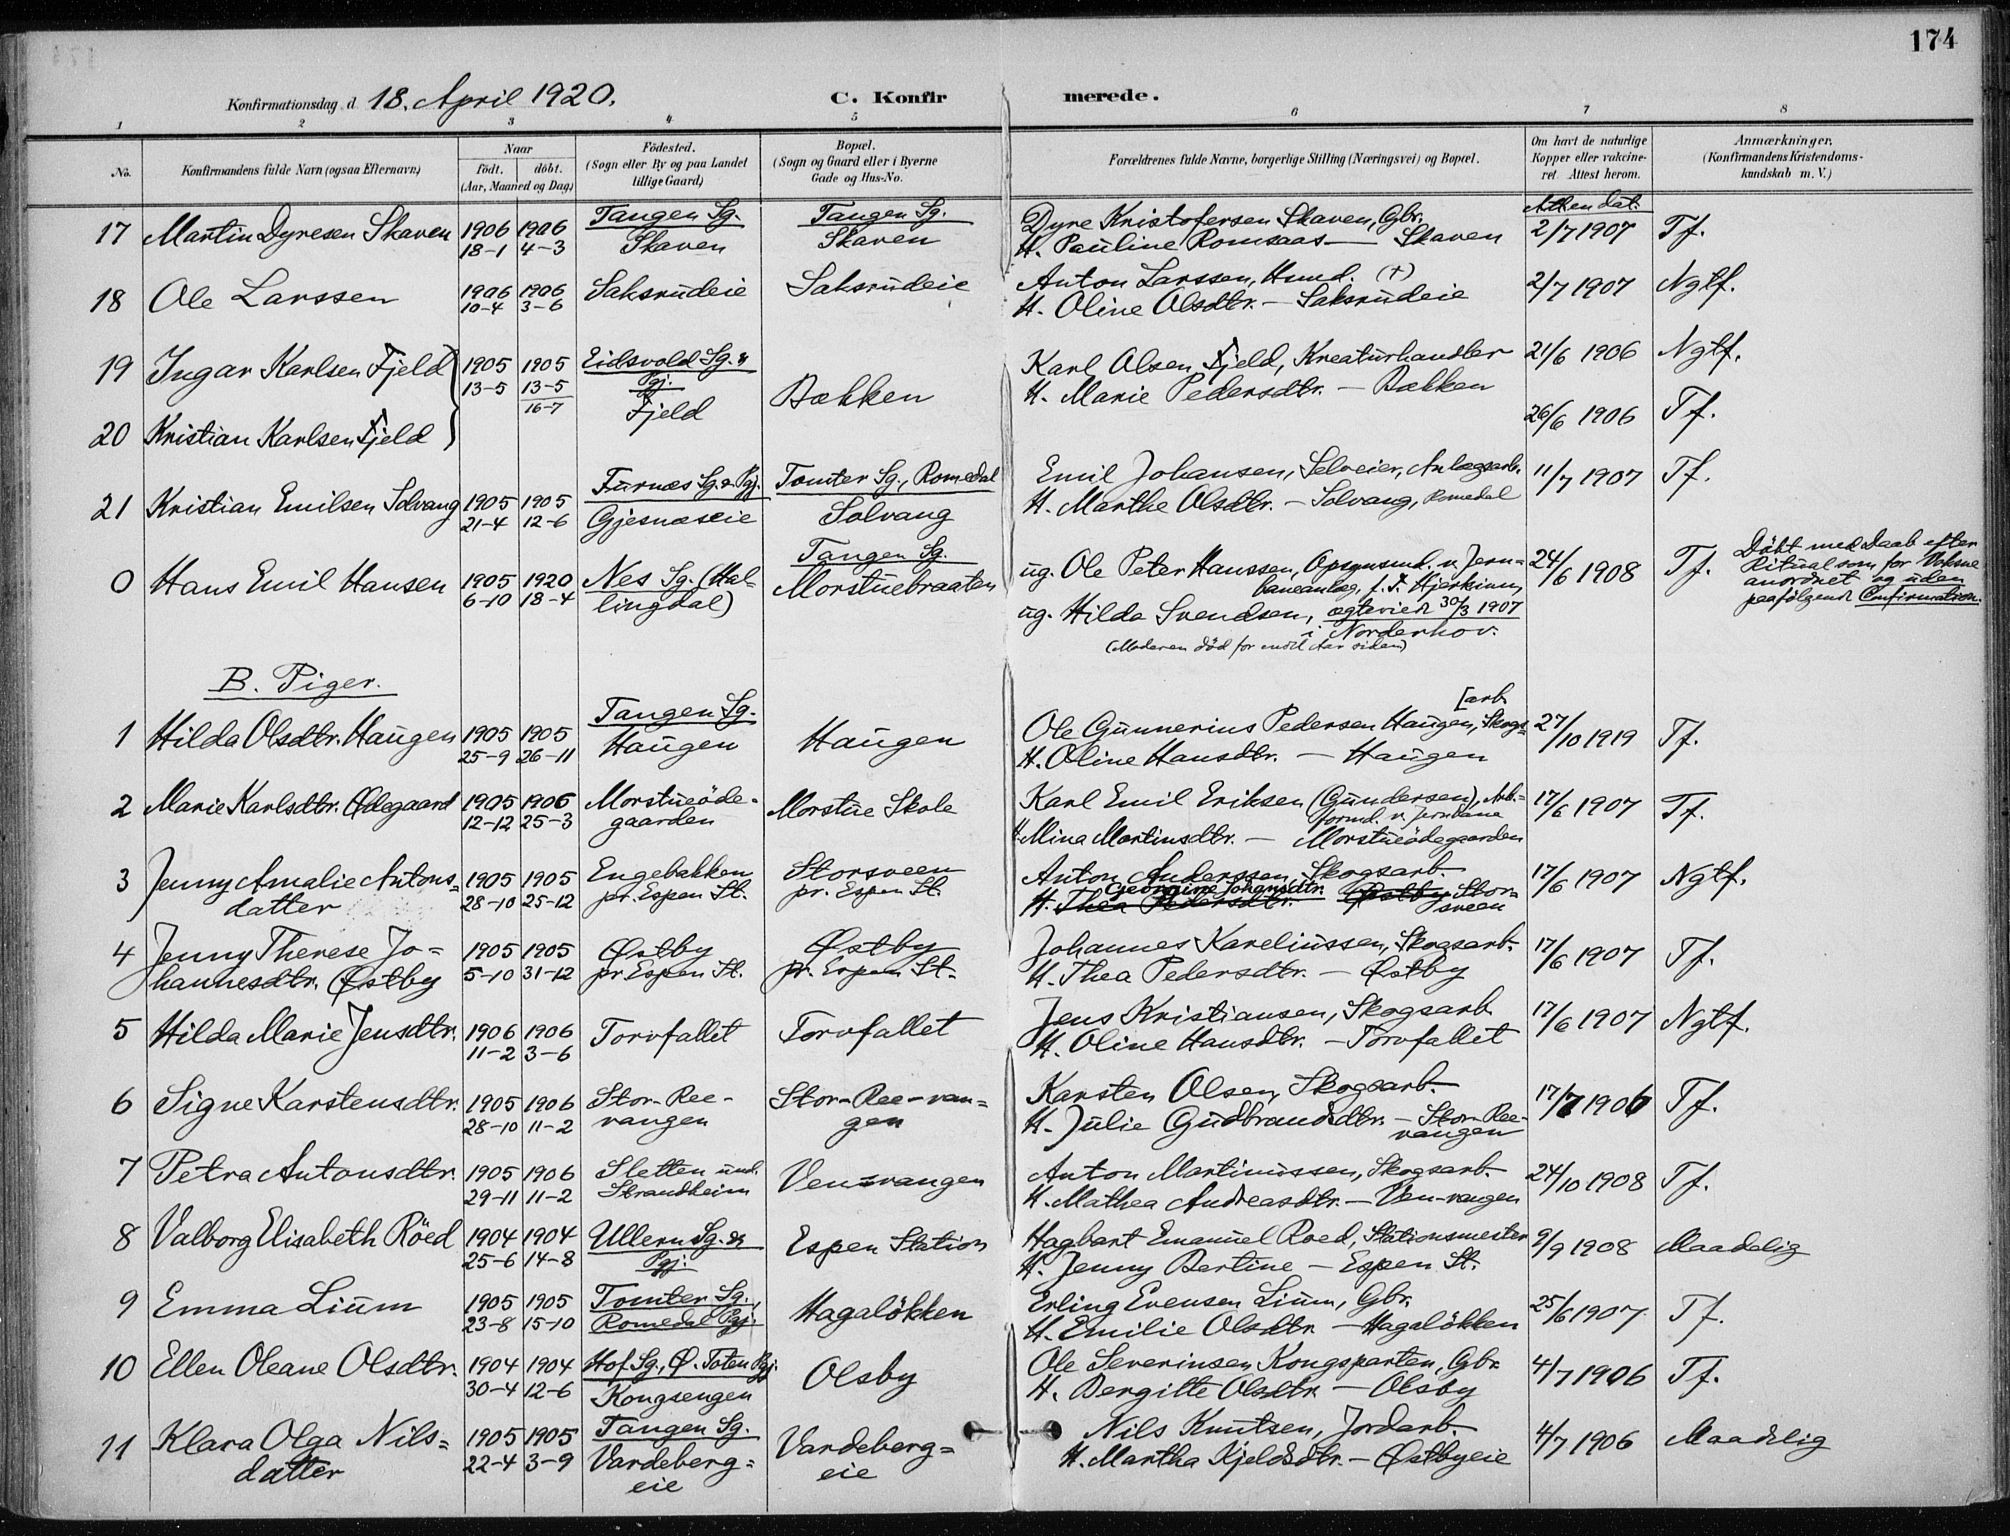 174
Konfirmationsdag d. 18. April 1920. C. Konfirmerede.
1 2 3 4 5 6 7 8
No. Konfirmandens fulde Navn (ogsaa Efternavn) Naar födt. döbt. (Aar, Maaned og Dag) Födested. (Sogn eller By og paa Landet tillige Gaard) Bopæl. (Sogn og Gaard eller i Byerne Gade og Hus-No. Forældrenes fulde Navne, borgerlige Stilling (Næringsvei) og Bopæl. Om havt de naturlige Kopper eller vaccineret Attest herom. Anmærkninger, (Konfirmandens Kristendomskundskab m. V.)
17 Martin Dyresen Skaven 1906 1906 Tangen Sg. Tangen Sg. Dyre Kristofersen Skaven, Gbr. 2/7 1907 Tf.
18-1 4-3 Skaven Skaven H. Pauline Romsaas — Skaven
18 Ole Larssen 1906 1906 Saksrudeie Saksrudeie Anton Larssen, Husmd. (+) 2/7 1907 Ngtf.
10-4 3-6 H. Oline Olsdtr. — Saksrudeie
19 Ingar Karlsen Fjeld 1905 1905 Eidsvold Sg. & Karl Olsen Fjeld, Kreaturhandler 21/6 1906 Ngtf.
13-5 13-5 Pgj. Bækken H. Marie Pedersdtr. — Bækken
16-7 Fjeld 26/6 1906 Tf.
20 Kristian Karlsen Fjeld
21 Kristian Emilsen Solvang 1905 1905 Furnæs Sg. & Pgj. Tomter Sg., Romedal Emil Johansen, Selveier, Anlægsarb. 11/7 1907 Tf.
21-4 12-6 Gjesnæseie Solvang H. Marthe Olsdtr. — Solvang, Romedal
0 Hans Emil Hansen 1905 1920 Nes Sg. (Hal- Tangen Sg. ug. Ole Peter Hanssen, Opsynsmd. v. Jern- 24/6 1908 Tf. Döbt med Daab efter
6-10 18-4 lingdal) Morstuebraaten baneanlæg, f. T. Hjerkinn, Ritual som for Voksne
ug. Hilda Svendsen, ægteviet 30/3 1907 anordnet og uden
i Norderhov. paafölgende Confirmation.
B. Piger.
[arb.
1 Hilda Olsdtr. Haugen 1905 1905 Tangen Sg. Haugen Ole Gunnerius Pedersen Haugen, Skogs- 27/10 1919 Tf.
25-9 26-11 Haugen H. Oline Hansdtr. — Haugen
2 Marie Karlsdtr. Ødegaard 1905 1906 Morstueöde- Morstue Skole Karl Emil Eriksen (Gundersen), Arb.- 17/6 1907 Tf.
12-12 25-3 gaarden formd. v. Jernbane
H. Mina Martinsdtr. — Morstueödegaarden
3 Jenny Amalie Antons- 1905 1905 Engebakken Storsveen Anton Anderssen, Skogsarb. 17/6 1907 Ngtf.
datter 28-10 25-12 pr. Espen St. pr. Espen St. Georgine Johansdtr.
H. Thea Pedersdtr. Østby Storsveen
4 Jenny Therese Jo- 1905 1905 Østby Østby Johannes Kareliussen, Skogsarb. 17/6 1907 Tf.
hannesdtr. Østby 5-10 31-12 pr. Espen St. pr. Espen St. H. Thea Pedersdtr. — Østby
5 Hilda Marie Jensdtr. 1906 1906 Torvfallet Torvfallet Jens Kristiansen, Skogsarb. 17/6 1907 Ngtf.
11-2 3-6 H. Oline Hansdtr. — Torvfallet
6 Signe Karstensdtr. 1905 1906 Stor-Ree- Stor-Ree-van- Karsten Olsen, Skogsarb. 17/7 1906 Tf.
28-10 11-2 vangen gen H. Julie Gudbrandsdtr. — Stor-Ree-
vangen
7 Petra Antonsdtr. 1905 1906 Sletten und. Venvangen Anton Martinussen, Skogsarb. 24/10 1908 Tf.
29-11 11-2 Strandheim H. Mathea Andreasdtr. — Ven-vangen
8 Valborg Elisabeth Röed 1904 1904 Ullern Sg. & Espen Station Hagbart Emanuel Roed, Stationsmester 9/9 1908 Maadelig
25-6 14-8 Pgj. H. Jenny Bertine — Espen St.
9 Emma Lium 1905 1905 Tomter Sg., Hagalökken Erling Evensen Lium, Gbr. 25/6 1907 Tf.
23-8 15-10 Romedal Pgj. H. Emilie Olsdtr. — Hagalökken
10 Ellen Oleane Olsdtr. 1904 1904 Hof Sg., Ø. Toten Pgj. Olsby Ole Severinsen Kongsparten, Gbr. 4/7 1906 Tf.
30-4 12-6 Kongsengen H. Bergitte Olsdtr. — Olsby
11 Klara Olga Nils- 1905 1905 Tangen Sg. Vardeberg- Nils Knutsen, Jordarb. 4/7 1906 Maadelig
datter 22-4 3-9 Vardeberg- eie H. Martha Kjeldsdtr. — Østbyeie
eie